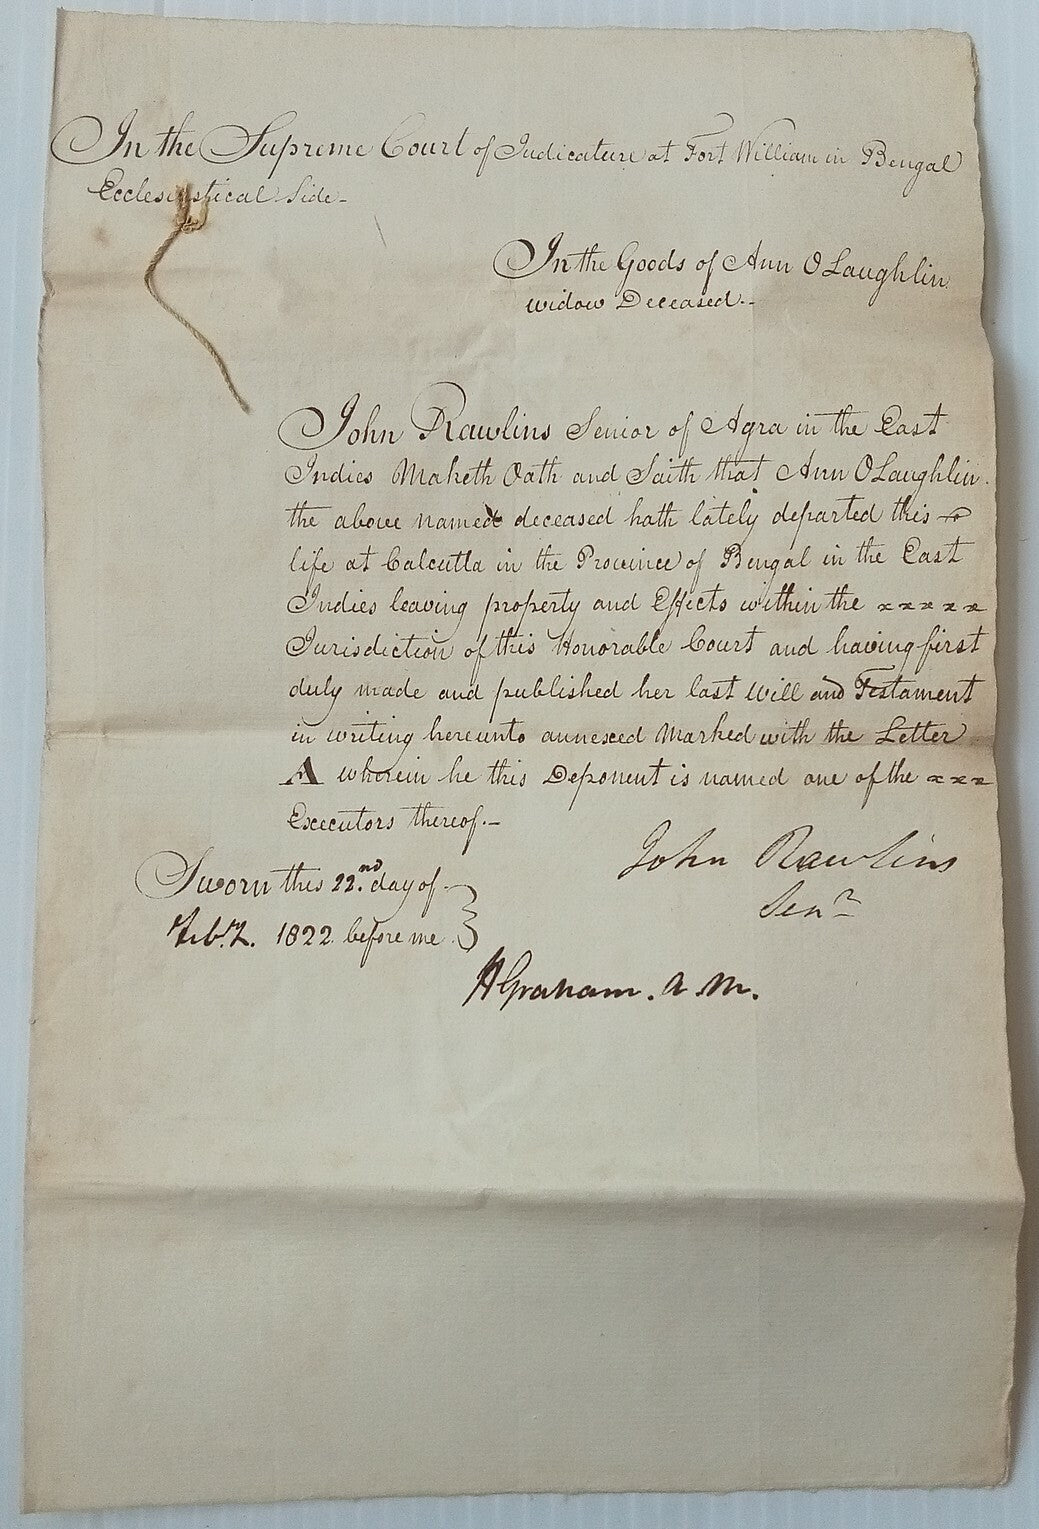 In the Supreme Court of Judicature at Fort William in Bengal
Ecclesiastical Side-
In the Goods of Ann O Laughlin
widow Deceased.-
John Rawlins Senior of Agra in the East
Indies Maketh Oath and Saith that Ann O Laughlin
the above named deceased hath lately departed this
life at Calcutta in the Province of Bengal in the East
Indies leaving property and Effects within the x x x x x
Jurisdiction of this Honorable Court and having first
duly made and published her last Will and Testament
in writing hereunto annexed Marked with the Letter
A wherein he this Deponent is named one of the x x x
Executors thereof.-
John Rawlins
Senr
Sworn this 22.nd day of
Feb.ry. 1822 before me
HGraham. a.m.